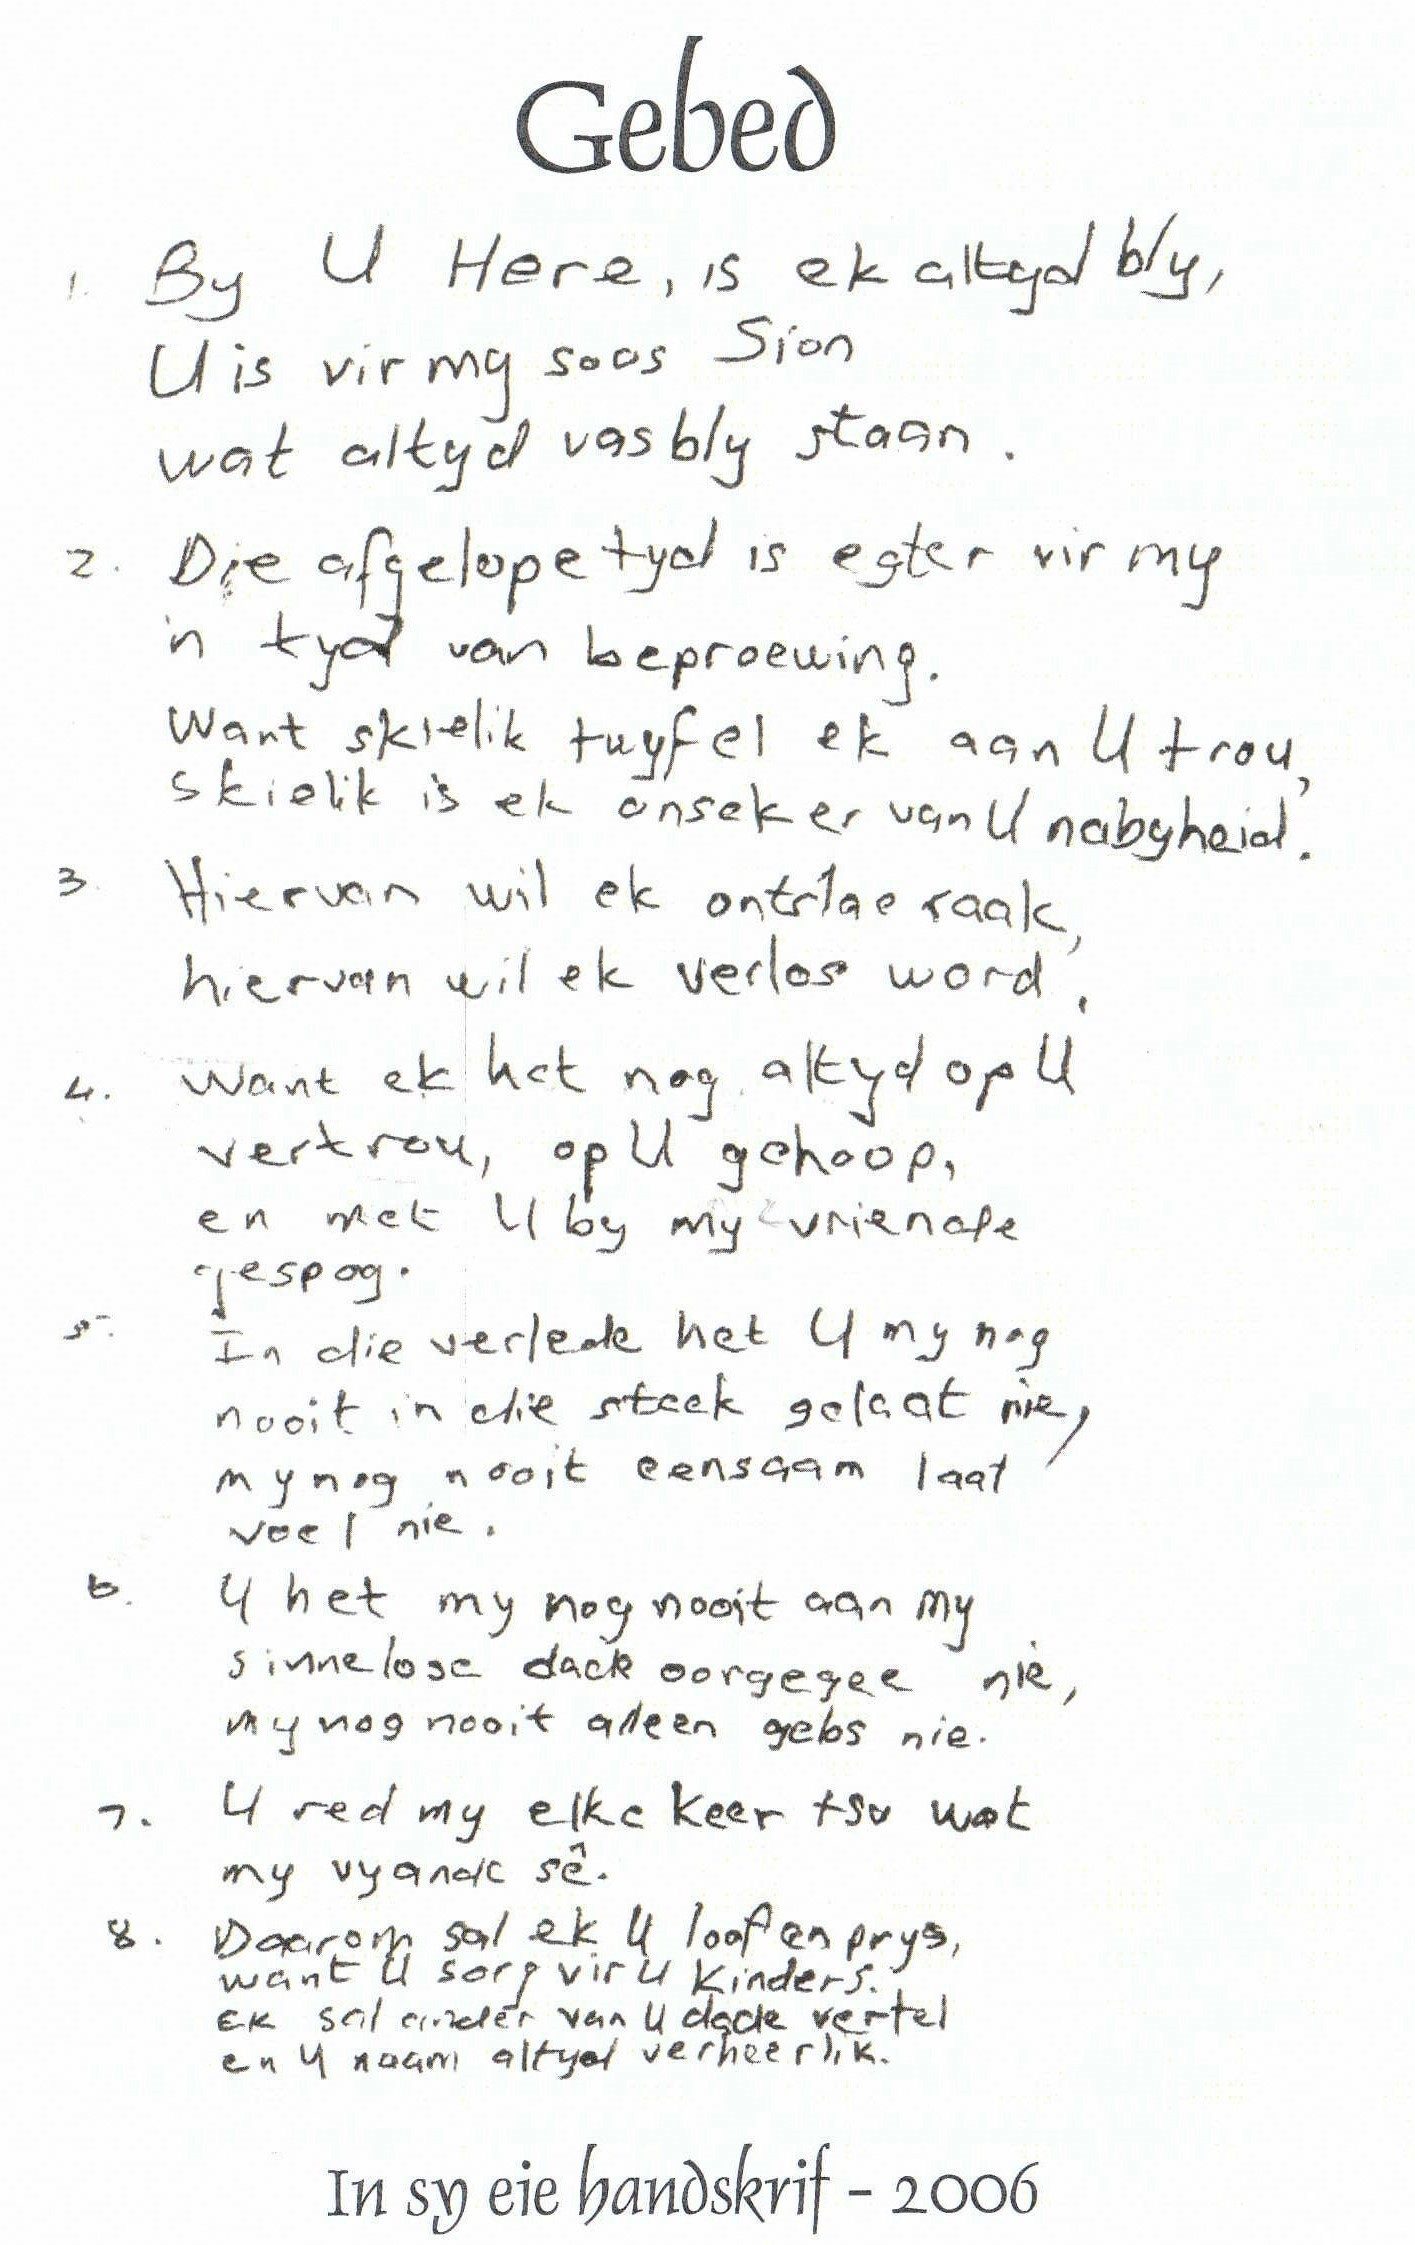 Gebed
1. By U Here, is ek altyd bly,
U is vir my soos Sion
wat altyd vas bly staan.
2. Die afgelope tyd is egter vir my
'n tyd van beproewing.
Want skielik twyfel ek aan U trou,
skielik is ek onseker van U nabyheid.
3. Hiervan wil ek ontslae raak,
hiervan wil ek verlos word,
4. Want ek het nog altyd op U
vertrou, op U gehoop,
en met U by my vriende
gespog.
5. In die verlede het U my nog
nooit in die steek gelaat nie,
my nog nooit eensaam laat
voel nie.
6. U het my nog nooit aan my
sinnelose dade oorgegee nie,
my nog nooit alleen gelos nie.
7. U red my elke keer tsv wat
my vyande sê.
8. Daarom sal ek U loof en prys,
want U sorg vir U kinders.
Ek sal ander van U dade vertel
en U naam altyd verheerlik.
In sy eie handskrif - 2006